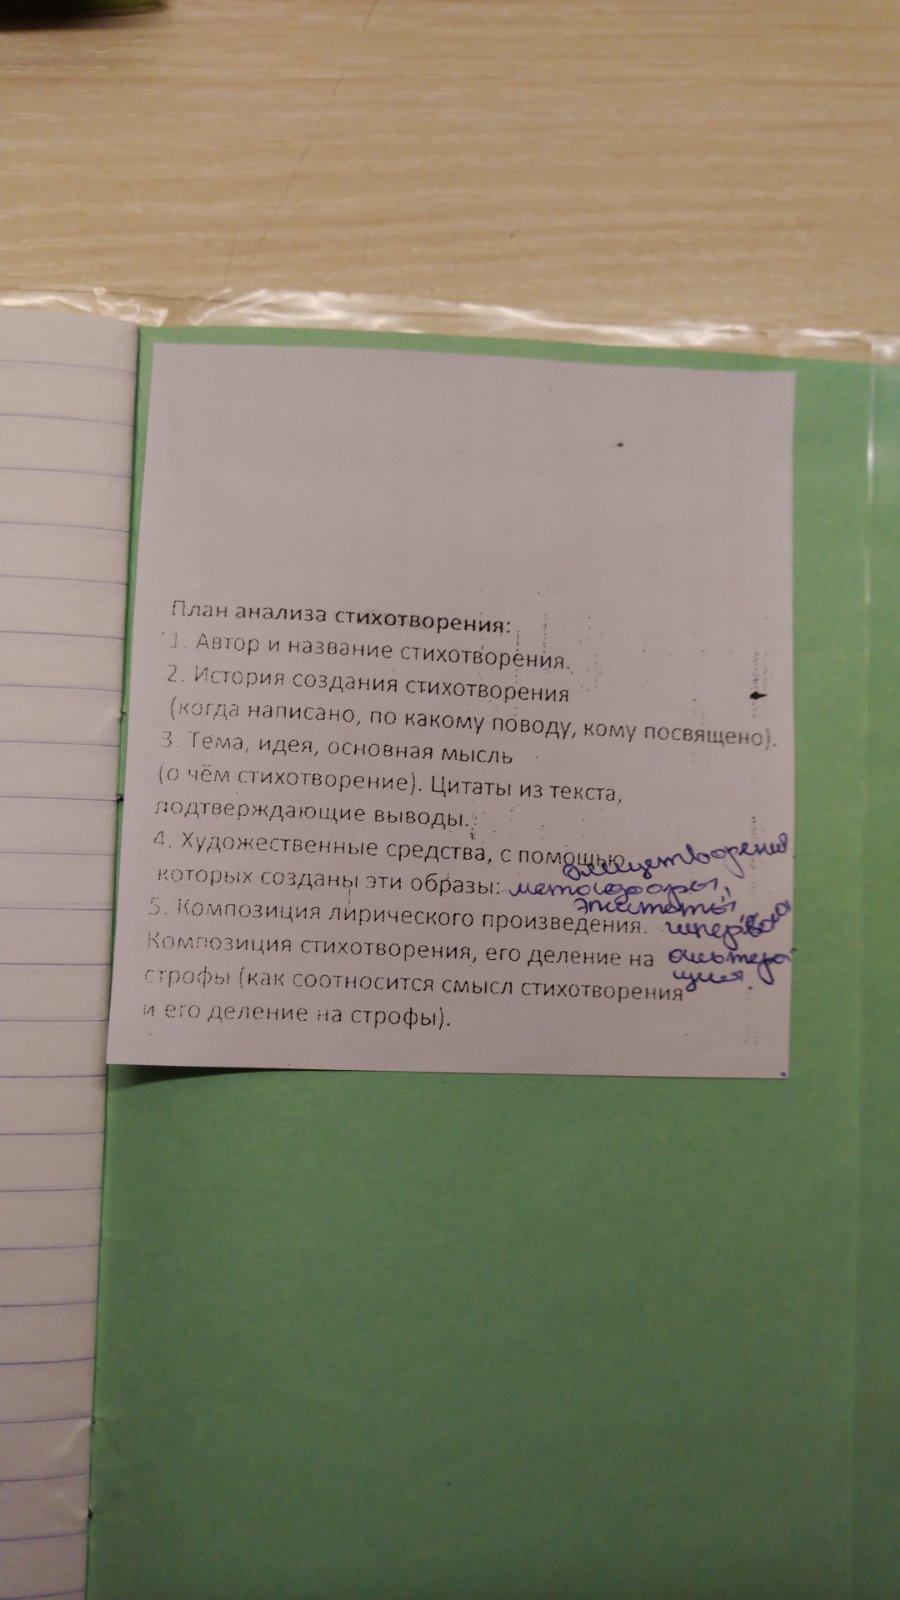 План анализа стихотворения:
1. Автор и название стихотворения.
2. История создания стихотворения
(когда написано, по какому поводу, кому посвящено).
3. Тема, идея, основная мысль
(о чём стихотворение). Цитаты из текста,
подтверждающие выводы.
4. Художественные средства, с помощью
олицетворения
которых созданы эти образы: метафоры,
эпитеты,
5. Композиция лирического произведения. гипербола
Композиция стихотворения, его деление на аллитера
ция.
строфы (как соотносится смысл стихотворения
и его деление на строфы).